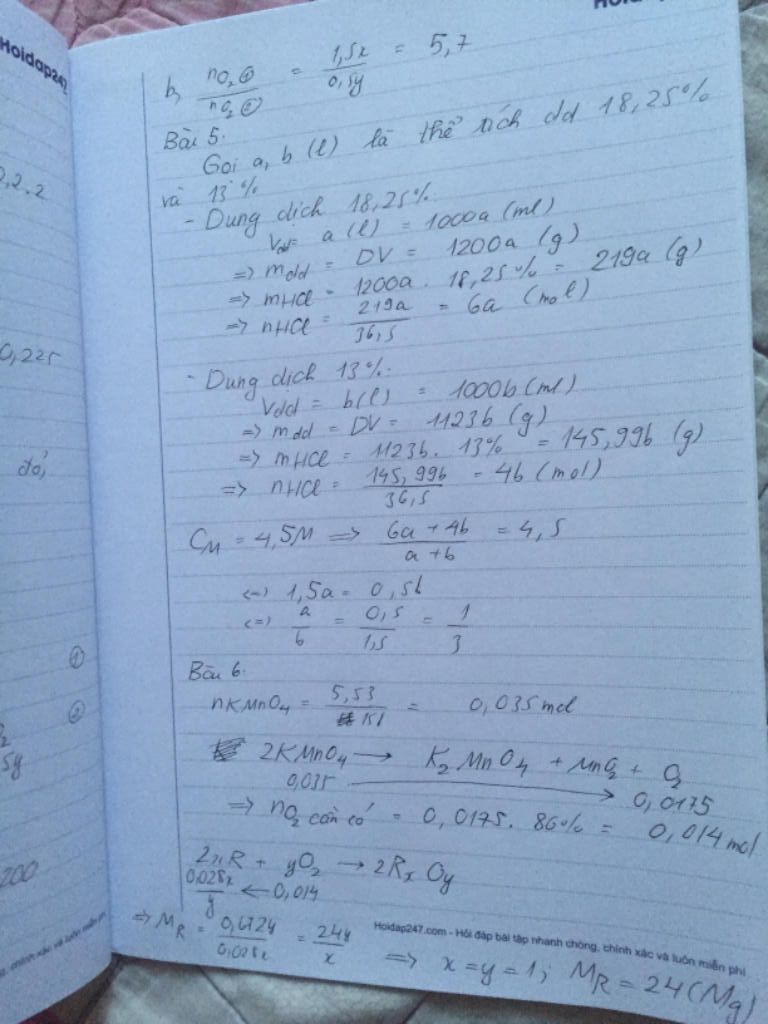 Hoidap247
b, nO2 ① / nO2 ② = 1,5x / 0,5y = 5,7
Bài 5.
Gọi a, b (l) là thể tích dd 18,25%
và 13%
- Dung dịch 18,25%.
Vdd = a (l) = 1000a (ml)
=> mdd = DV = 1200a (g)
=> mHCl = 1200a . 18,25% = 219a (g)
=> nHCl = 219a / 36,5 = 6a (mol)
- Dung dịch 13%.
Vdd = b(l) = 1000b (ml)
=> mdd = DV = 1123b (g)
=> mHCl = 1123b. 13% = 145,99b (g)
=> nHCl = 145,99b / 36,5 = 4b (mol)
CM = 4,5M => 6a + 4b / a + b = 4,5
<=> 1,5a = 0,5b
<=> a / b = 0,5 / 1,5 = 1 / 3
Bài 6.
nKMnO4 = 5,53 / 151 = 0,035 mol
2KMnO4 → K2MnO4 + MnO2 + O2
0,035 → 0,0175
=> nO2 cần có = 0,0175. 86% = 0,014 mol
2xR + yO2 → 2RxOy
0,028x / y ← 0,014
=> MR = 0,672y / 0,028x = 24y / x => x = y = 1; MR = 24 (Mg)
Hoidap247.com - Hỏi đáp bài tập nhanh chóng, chính xác và luôn miễn phí
2,2.2
0,225
đó,
①
②
5y
200
chính xác và luôn miễn phí